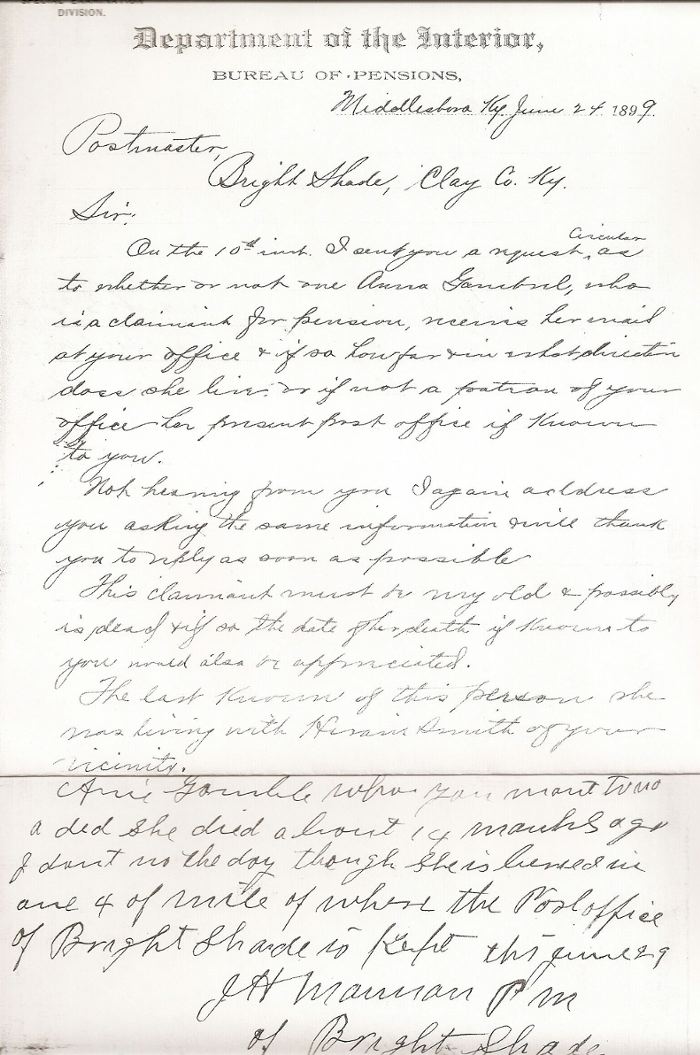 SPECIAL EXAMINATION
DIVISION.
Department of the Interior,
BUREAU OF PENSIONS,
Middlesboro Ky June 24 1899.
Postmaster,
Bright Shade, Clay Co. Ky.
Sir:
Circular
On the 10th inst. I sent you a request, as
to whether or not one Anna Gambrel, who
is a claimant for pension, receives her mail
at your office & if so how far & in what direction
does she live. or if not a patron of your
office her present post office if known
to you.
Not hearing from you I again address
you asking the same information & will thank
you to reply as soon as possible
This claimant must be very old & possibly
is dead & if so the date of her death if known to
you would also be appreciated.
The last known of this person she
was living with Hiram Smith of your
vicinity.
Anie Gamble who you want to no
a ded she died about 14 months ago
I dont no the day though she is bured in
one 4 of mile of where the Post office
of Bright Shade is Kept this june 29
J H Pm
of Bright Shade